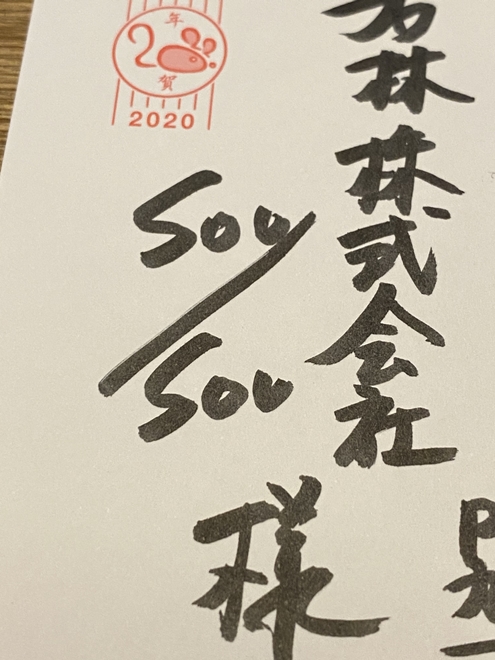 年
20
賀
2020
林株式会社
SOU/SOU
様